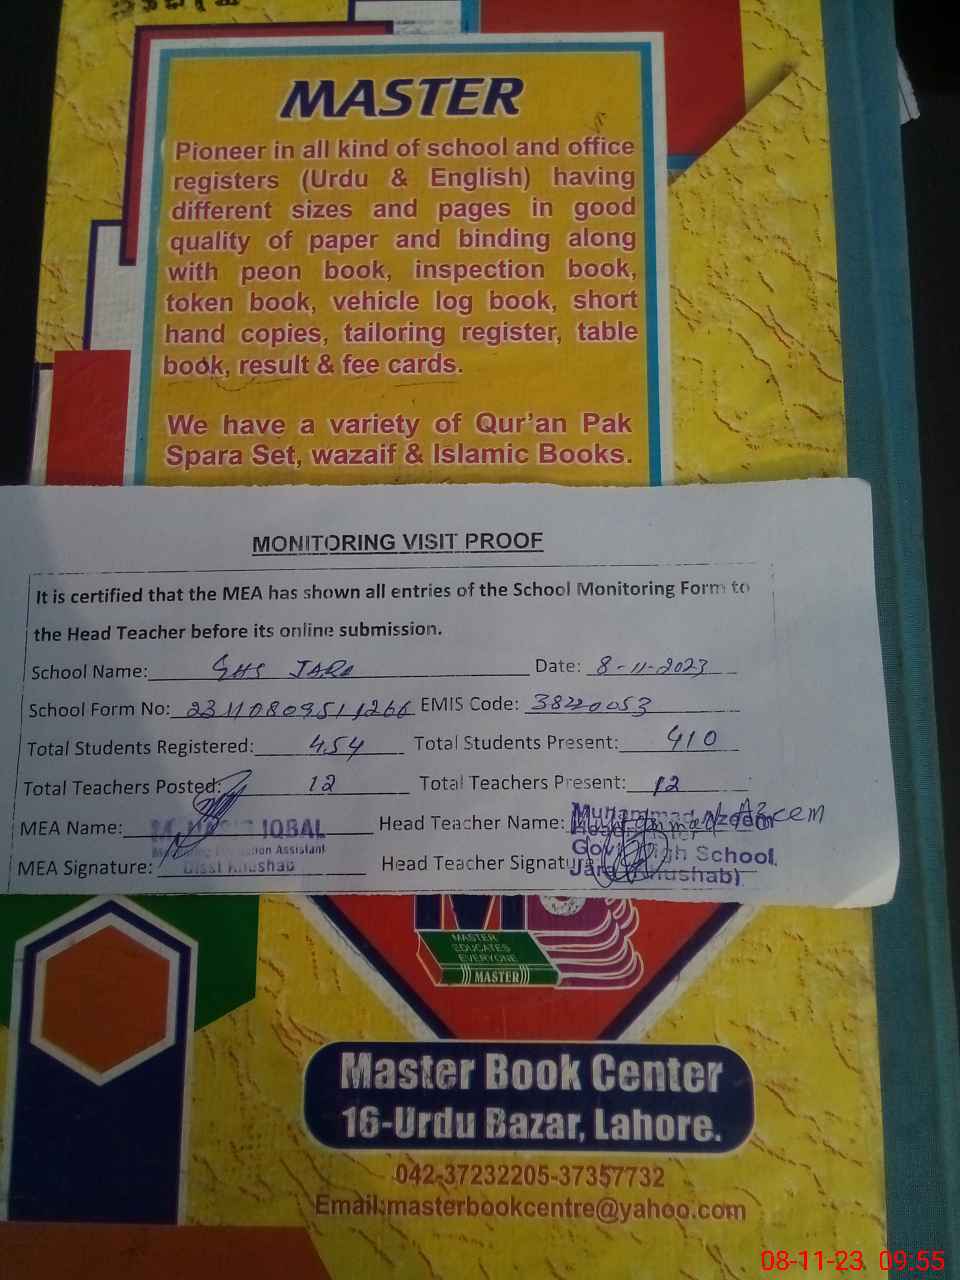 MASTER
Pioneer in all kind of school and office
registers (Urdu & English) having
different sizes and pages in good
quality of paper and binding along
with peon book, inspection book,
token book, vehicle log book, short
hand copies, tailoring register, table
book, result & fee cards.
We have a variety of Qur'an Pak
Spara Set, wazaif & Islamic Books.
MONITORING VISIT PROOF
It is certified that the MEA has shown all entries of the School Monitoring Form to
the Head Teacher before its online submission.
School Name: GHS JARA Date: 8-11-2023
School Form No: 23110809511266 EMIS Code: 38220053
Total Students Registered: 454 Total Students Present: 410
Total Teachers Posted: 12 Total Teachers Present: 12
MEA Name: IQBAL Head Teacher Name: Muhammad Azeem
MEA Signature: Head Teacher Signature
Govt. High School,
Jara (Khushab)
MASTER
EDUCATES
EVERYONE
MASTER
Master Book Center
16-Urdu Bazar, Lahore.
042-37232205-37357732
Email:masterbookcentre@yahoo.com
08-11-23 09:55